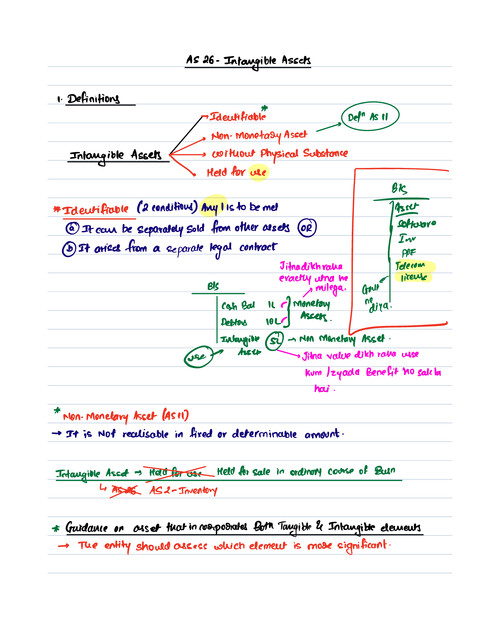 AS 26 - Intangible Assets
1. Definitions
Intangible Assets
Identifiable *
Non-Monetary Asset
Defn AS 11
Without Physical Substance
Held for use
* Identifiable (2 conditions) Any 1 is to be met
(a) It can be separately sold from other assets (OR)
(b) It arises from a separate legal contract
B/S
Asset
Software
Inv
PPE
Telecom
license
Govt
ne
diya.
Jitna dikh raha
exactly utna he
milega.
B/S
Cash Bal 1L
Debtors 10L
Monetary
Assets.
Intangible
Asset
5L → Non Monetary Asset.
use
Jitna value dikh raha usse
Kum / zyada Benefit ho sakta
hai.
* Non-Monetary Asset (AS 11)
→ It is Not realisable in fixed or determinable amount.
Intangible Asset → Held for use Held for sale in ordinary course of Busn
↳ AS 26 AS 2 - Inventory
* Guidance on asset that incorporates Both Tangible & Intangible elements
→ The entity should assess which element is more significant.